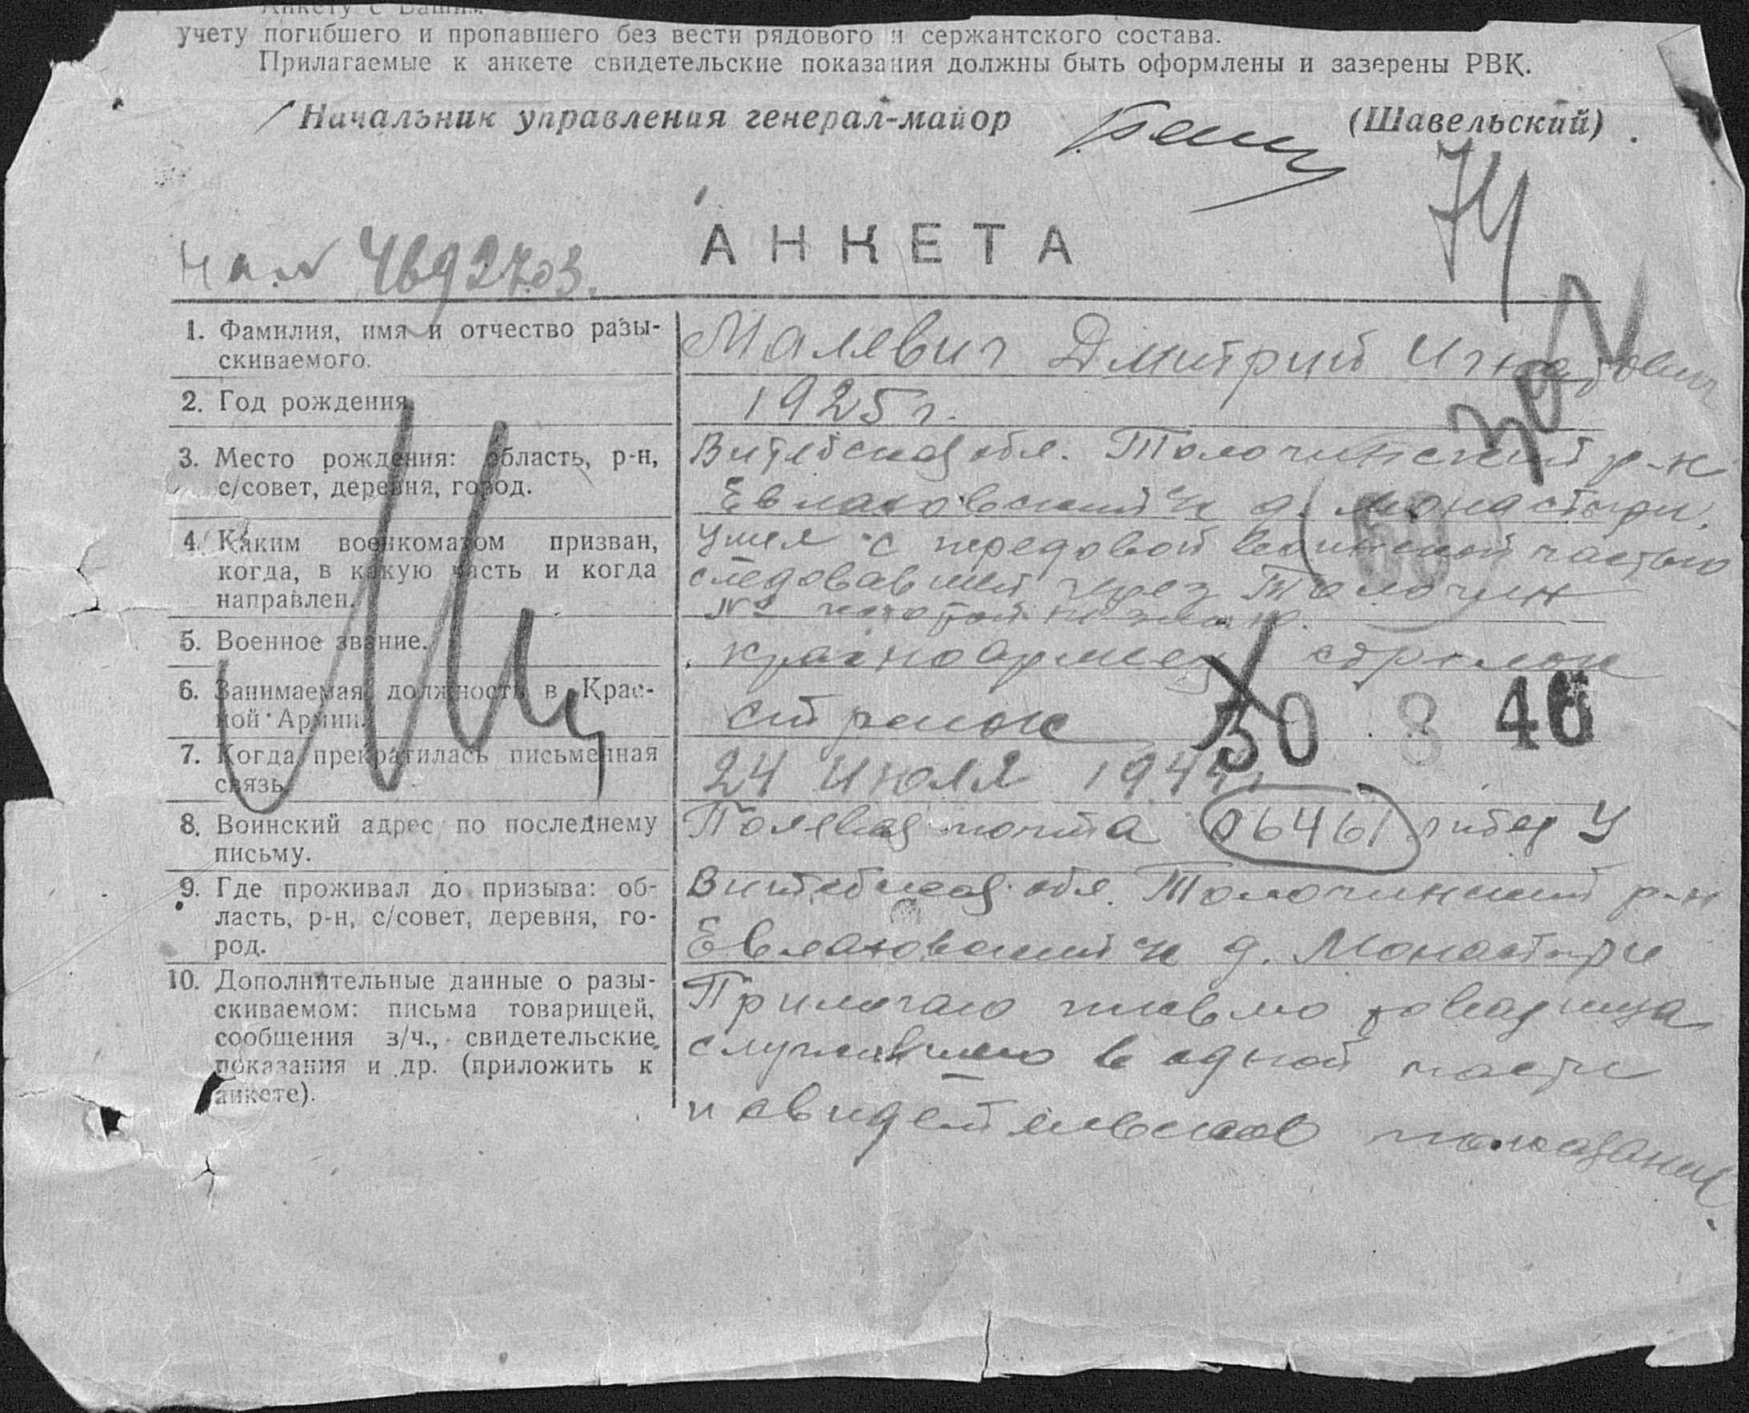 учету погибшего и пропавшего без вести рядового и сержантского состава.
Прилагаемые к анкете свидетельские показания должны быть оформлены и зазерены РВК.
Начальник управления генерал-майор (Шавельский)
74
АНКЕТА
1. Фамилия, имя и отчество разы-
скиваемого.
Малевич Дмитрий Игнатович
2. Год рождения
1925 г.
3. Место рождения: область, р-н,
с/совет, деревня, город.
Витебская обл. Толочинский р-н
Евлаховский д. Монастыри.
4. Каким военкоматом призван,
когда, в какую часть и когда
направлен.
Ушел с передовой воинской частью
следовавшей через Толочин
№ которой не знаю.
5. Военное звание.
красноармеец стрелок
6. Занимаемая должность в Крас-
ной Армии.
стрелок
30 8 46
7. Когда прекратилась письменная
связь.
24 июля 1944 г.
8. Воинский адрес по последнему
письму.
Полевая почта 06461 литер У
9. Где проживал до призыва: об-
ласть, р-н, с/совет, деревня, го-
род.
Витебская обл. Толочинский р-н
Евлаховский д. Монастыри
10. Дополнительные данные о разы-
скиваемом: письма товарищей,
сообщения з/ч., свидетельские
показания и др. (приложить к
анкете).
Прилагаю письмо товарища
служившего в одной части
и свидетельское показание.